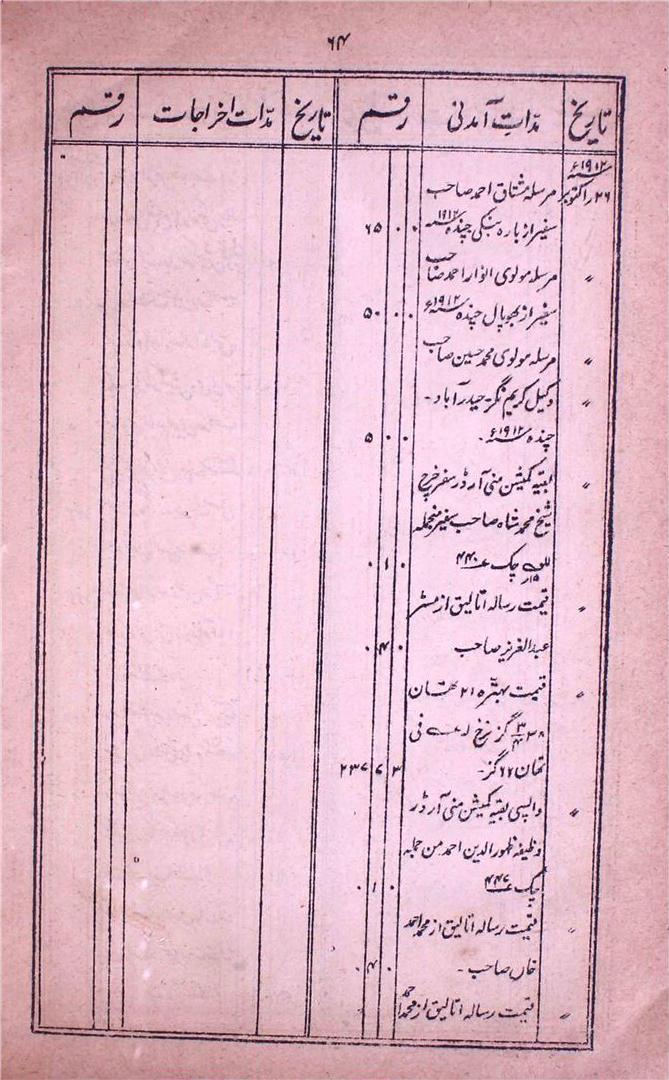 ۶۴
تاریخ مدّات آمدنی رقم تاریخ مدّات اخراجات رقم
سنہ ۱۹۱۲ء
۲۶ر اکتوبر مرسلہ مشتاق احمد صاحب
سفیر از بارہ بنکی چندہ سنہ ۱۹۱۲ء ۶۵ ۰ ۰
〃 مرسلہ مولوی انوار احمد صاحب
سفیر از بھوپال چندہ سنہ ۱۹۱۲ء ۵۰ ۰ ۰
〃 مرسلہ مولوی محمد حسین صاحب
〃 وکیل کریم نگر۔ حیدرآباد۔
چندہ سنہ ۱۹۱۲ء۔ ۵ ۰ ۰
〃 بقیہ کمیشن منی آرڈر سفر خرچ
شیخ محمد شاہ صاحب سفیر منجملہ
چک ۴۴۰ ۰ ۱ ۰
〃 قیمت رسالہ اتالیق از مسٹر
عبدالعزیز صاحب ۰ ۴ ۰
〃 قیمت ۲۱ تھان
۳/۴ ۳۸ گز نرخ فی
تھان ۲۲ گز۔ ۲۳۷ ۷ ۳
〃 واپسی بقیہ کمیشن منی آرڈر
وظیفہ ظہور الدین احمد من جملہ
چک ۴۴۷ ۰ ۱ ۰
〃 قیمت رسالہ اتالیق از محمد احمد
خاں صاحب۔ ۰ ۴ ۰
〃 قیمت رسالہ اتالیق از محمد احمد